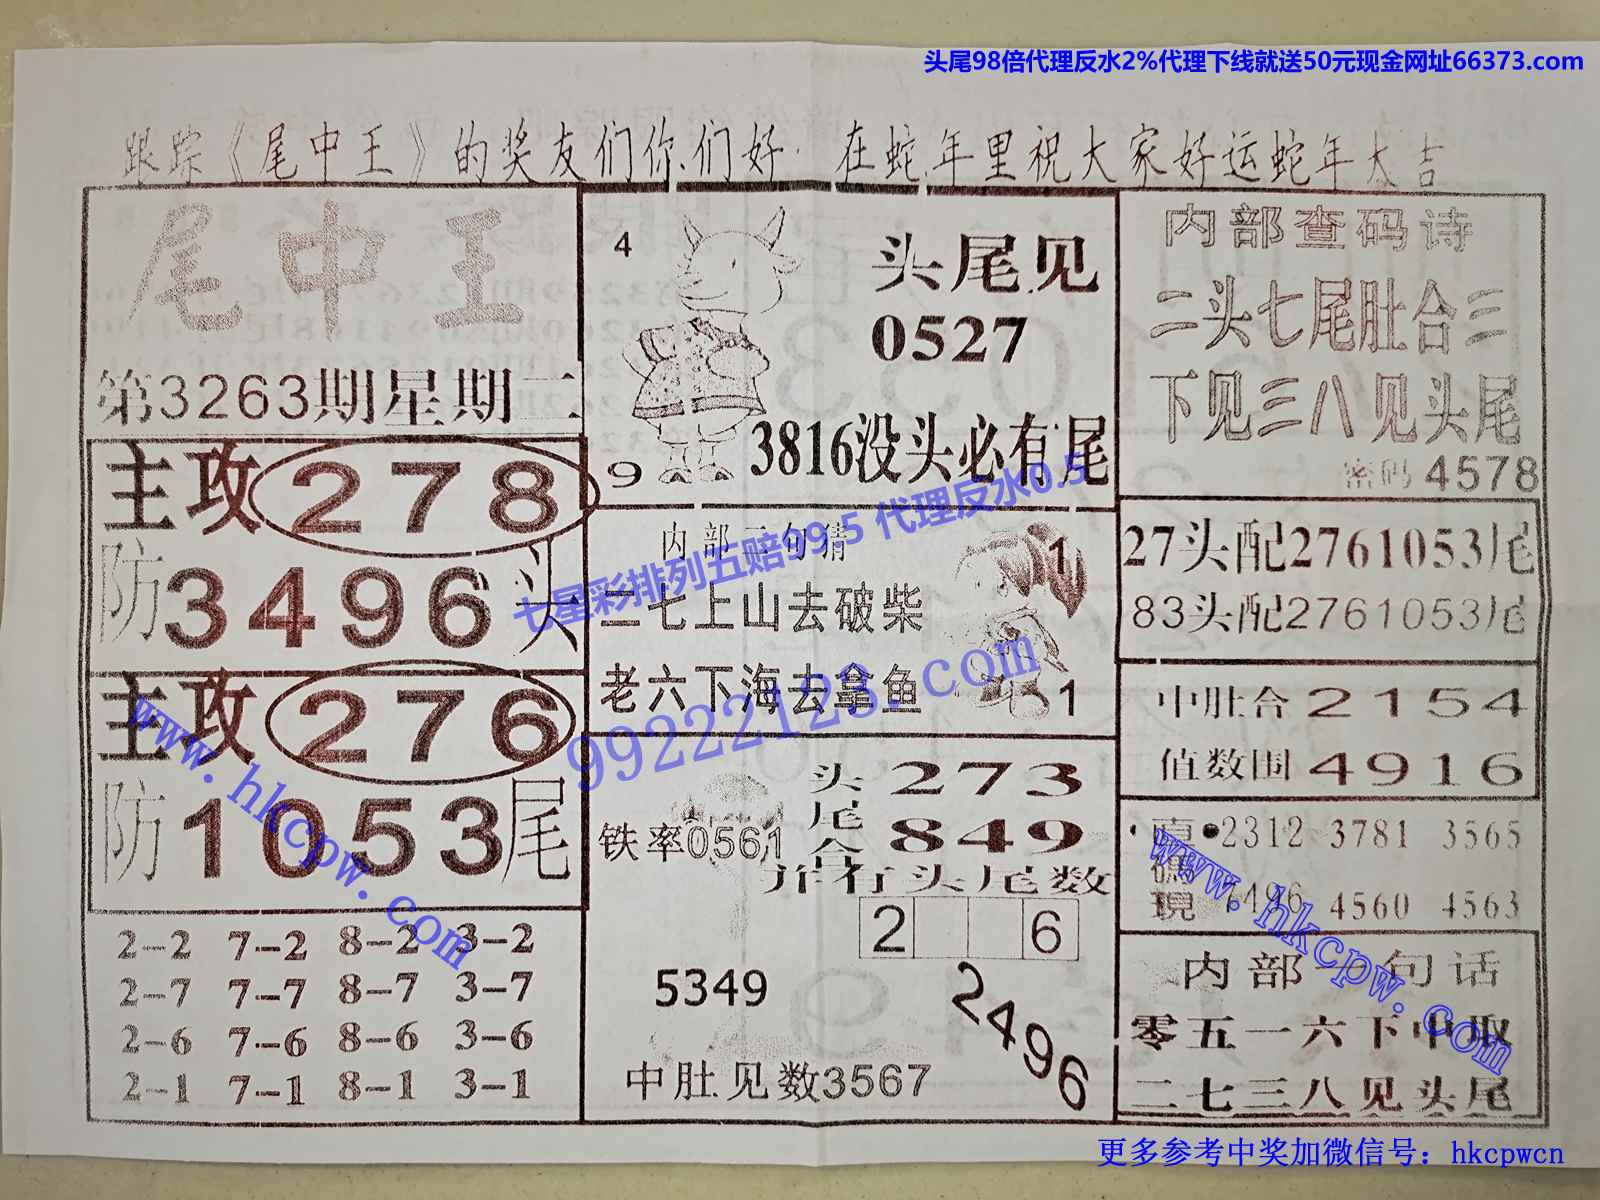 头尾98倍代理反水2%代理下线就送50元现金网址66373.com
跟踪《尾中王》的奖友们你们好 在蛇年里祝大家好运蛇年大吉
尾中王
第3263期星期二
主攻278
防3496头
主攻276
防1053尾
2-2 7-2 8-2 3-2
2-7 7-7 8-7 3-7
2-6 7-6 8-6 3-6
2-1 7-1 8-1 3-1
4
9
头尾见
0527
3816没头必有尾
七星彩排列五赔99.5 代理反水0.5
内部二句猜
三七上山去破柴
老六下海去拿鱼
1
1
99222123.com
铁率0561
头尾合
273
849
并有头尾数
2 6
5349
2496
中肚见数3567
内部查码诗
二头七尾肚合三
下见三八见头尾
密码4578
27头配2761053尾
83头配2761053尾
中肚合2154
值数围4916
直碼現
2312 3781 3565
7496 4560 4563
内部一句话
零五一六下中取
二七三八见头尾
www.hkcpw.com
www.hkcpw.com
更多参考中奖加微信号：hkcpwcn